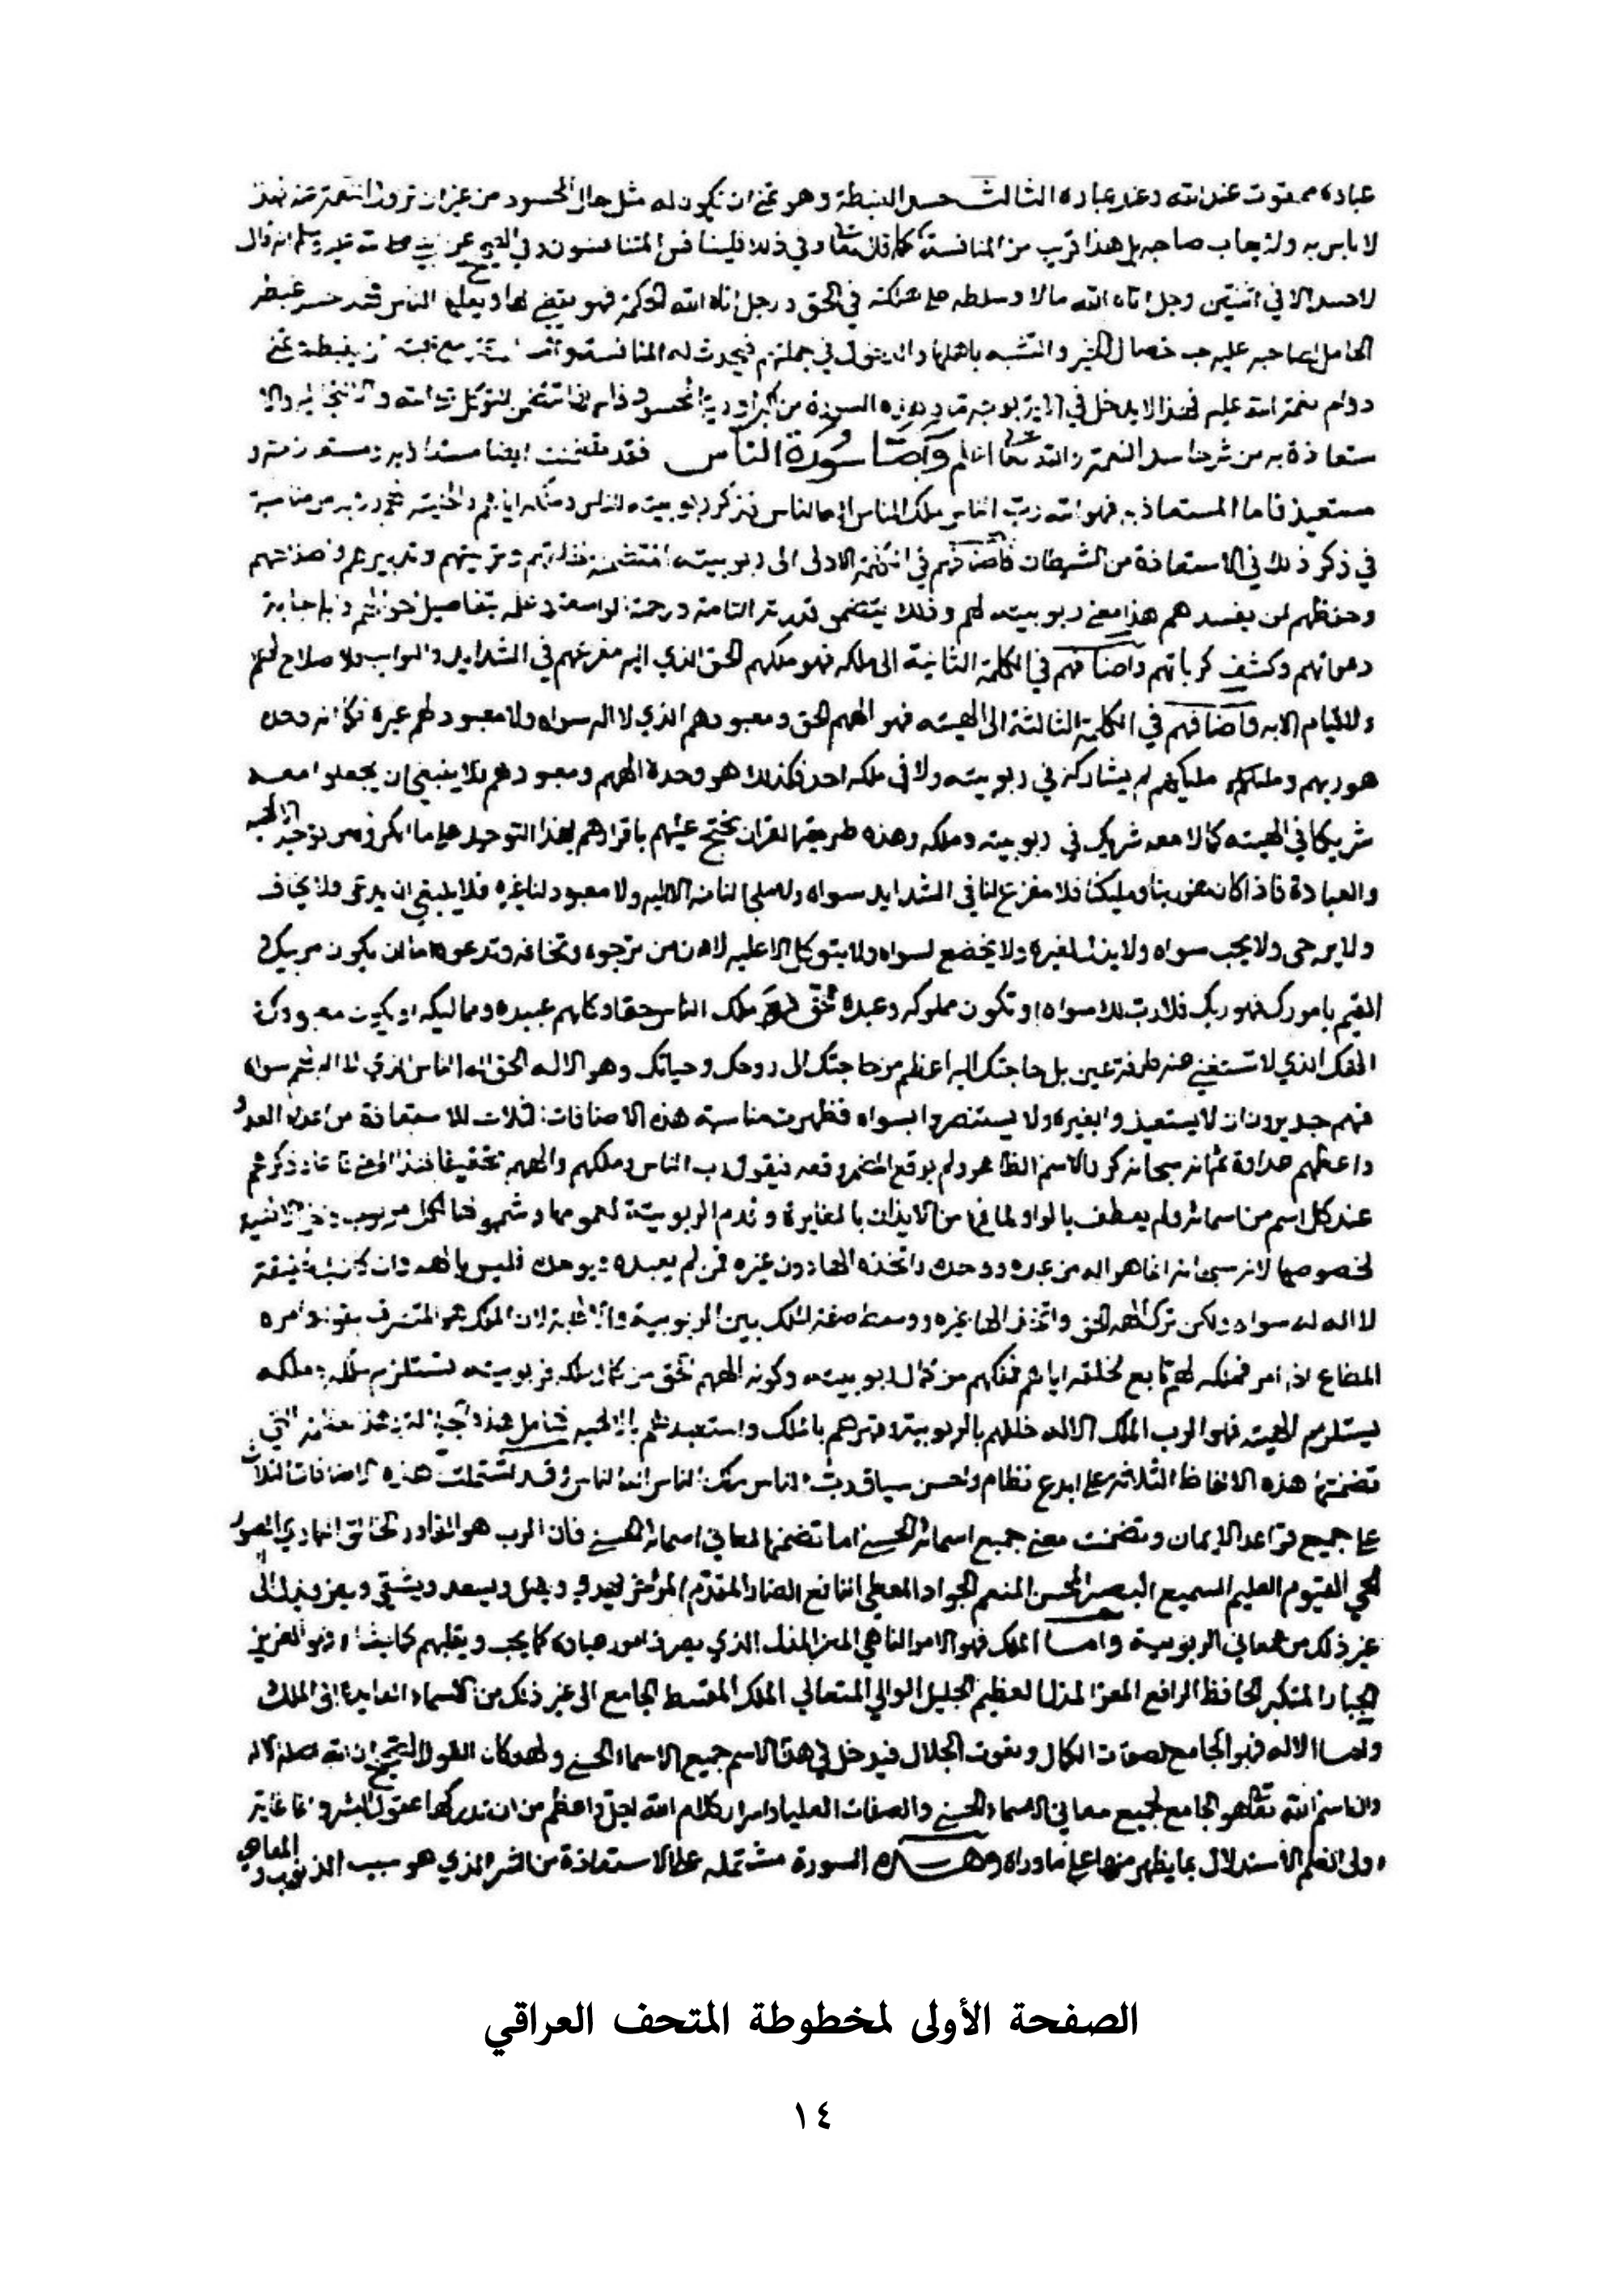 عباده ممقوت عند الله وعند عباده الثالث حسد الغبطة وهو تمني ان يكون له مثل حال المحسود من غير ان تزول النعمة عنه فهذا
لا باس به ولا يعاب صاحبه بل هذا قريب من المنافسة كما قال تعا وفي ذلك فليتنافس المتنافسون وفي الصحيح عن النبي صلى الله عليه وسلم انه قال
لا حسد الا في اثنتين رجل اتاه الله مالا وسلطه على هلكته في الحق ورجل اتاه الله الحكمة فهو يقضي بها ويعلمها الناس فهذا حسد غبطة
الحامل لصاحبه عليه حب خصال الخير والتشبه باهلها والدخول في جملتهم فيحدث له المنافسة
دوام نعمة الله عليه فهذا لا يدخل في الاية بوجه ما وهذه السورة من اكبر ادوية المحسود فانها تتضمن التوكل على الله والالتجا اليه والا
ستعاذة به من شر حاسد النعمة والله تعا اعلم واما سورة الناس فقد تضمنت ايضا مستعاذا به ومستعاذ منه و
مستعيذ فاما المستعاذ به فهو الله رب الناس ملك الناس اله الناس فذكر ربوبيته للناس وملكه اياهم والهيته لهم ولا بد من مناسبة
في ذكر ذلك في الاستعاذة من الشيطان فاضافهم في الكلمة الاولى الى ربوبيته المتضمنة لخلقهم وتربيتهم وتدبيرهم واصلاحهم
وحفظهم لمن يفسدهم هذا معنى ربوبيته لهم وذلك يتضمن قدرته التامة ورحمته الواسعة وعلمه بتفاصيل احوالهم وباجابة
دعواتهم وكشف كرباتهم واضافهم في الكلمة الثانية الى ملكه فهو ملكهم الحق الذي اليه مفزعهم في الشدايد والنوايب ولا صلاح لهم
ولا قيام الا به واضافهم في الكلمة الثالثة الى الهيته فهو الههم الحق ومعبودهم الذي لا اله سواه ولا معبود لهم غيره فكما انه وحده
هو ربهم ومليكهم لم يشاركه في ربوبيته ولا في ملكه احد فكذلك هو وحده الههم ومعبودهم فلا ينبغي ان يجعلوا معه
شريكا في الهيته كما لا معه شريك في ربوبيته وملكه وهذه طريقة القران يحتج عليهم باقرارهم بهذا التوحيد على ما انكروه من توحيد الالهية
والعبادة فاذا كان هو ربنا ومليكنا فلا مفزع لنا في الشدايد سواه ولا ملجا لنا منه الا اليه ولا معبود لنا غيره فلا ينبغي ان يدعى ولا يخاف
ولا يرجى ولا يحب سواه ولا يذل لغيره ولا يخضع لسواه ولا يتوكل الا عليه لان من ترجوه وتخافه وتدعوه اما ان يكون مربيك و
القيم بامورك فهو ربك فلا رب لك سواه او تكون مملوكه وعبده الحق فهو ملك الناس حقا وكلهم عبيده ومماليكه او يكون معبودك
الهك الذي لا تستغني عنه طرفة عين بل حاجتك اليه اعظم من حاجتك الى روحك وحياتك وهو الاله الحق اله الناس الذي لا اله لهم سواه
فهم جديرون ان لا يستعيذوا بغيره ولا يستنصروا بسواه فظهرت مناسبة هذه الاضافات الثلاث للاستعاذة من اعدى العدو
واعظمهم عداوة ثم انه سبحانه كرر الاسم الظاهر ولم يوقع المضمر موقعه فيقول رب الناس وملكهم والههم تحقيقا لهذا المعنى فاعاد ذكرهم
عند كل اسم من اسمائه ولم يعطف بالواو لما فيها من الايذان بالمغايرة وقدم الربوبية لعمومها وشمولها لكل مربوب واخر الالهية
لخصوصها لانه سبحانه انما هو اله من عبده ووحده واتخذه الها دون غيره فمن لم يعبده ويوحده فليس بالهه وان كان في الحقيقة
لا اله له سواه ولكن ترك الهه الحق واتخذ الها غيره ووسط صفة الملك بين الربوبية والالهية لان الملك هو المتصرف بقوله وامره
المطاع اذا امر فملكه لهم تابع لخلقه اياهم فملكهم من كمال ربوبيته وكونه الههم الحق من كمال ملكه فربوبيته تستلزم ملكه وملكه
يستلزم الهيته فهو الرب الملك الاله خلقهم بالربوبية وقهرهم بالملك واستعبدهم بالالهية فتامل هذه الجلالة وهذه العظمة التي
تضمنتها هذه الالفاظ الثلاثة على ابدع نظام واحسن سياق رب الناس ملك الناس اله الناس وقد اشتملت هذه الاضافات الثلاث
على جميع قواعد الايمان وتضمنت معنى جميع اسمائه الحسنى اما تضمنها لمعاني اسمائه الحسنى فان الرب هو القادر الخالق البارئ المصور
الحي القيوم العليم السميع البصير المحسن المنعم الجواد المعطي المانع الضار المقدم المؤخر الذي يهدي ويضل ويسعد ويشقي ويعز ويذل الى
غير ذلك من معاني الربوبية واما الملك فهو الامر الناهي المعز المذل الذي يصرف امور عباده كما يحب ويقلبهم كما يشاء وهو العزيز
الجبار المتكبر الحافظ الرافع المعز المذل العظيم الجليل الوالي المتعالي الملك المقسط الجامع الى غير ذلك من الاسماء العايدة الى الملك
واما الاله فهو الجامع لصفات الكمال ونعوت الجلال فيدخل في هذا الاسم جميع الاسماء الحسنى ولهذا كان القول الصحيح ان الله اصله الاله
وان اسم الله تعا هو الجامع لجميع معاني الاسماء الحسنى والصفات العليا واسرار كلام الله اجل واعظم من ان تدركها عقول البشر وانما غاية
اولي العلم الاستدلال بما يظهر منها على ما وراه وهذه السورة مشتملة على الاستعاذة من الشر الذي هو سبب الذنوب والمعاصي
الصفحة الأولى لمخطوطة المتحف العراقي
١٤